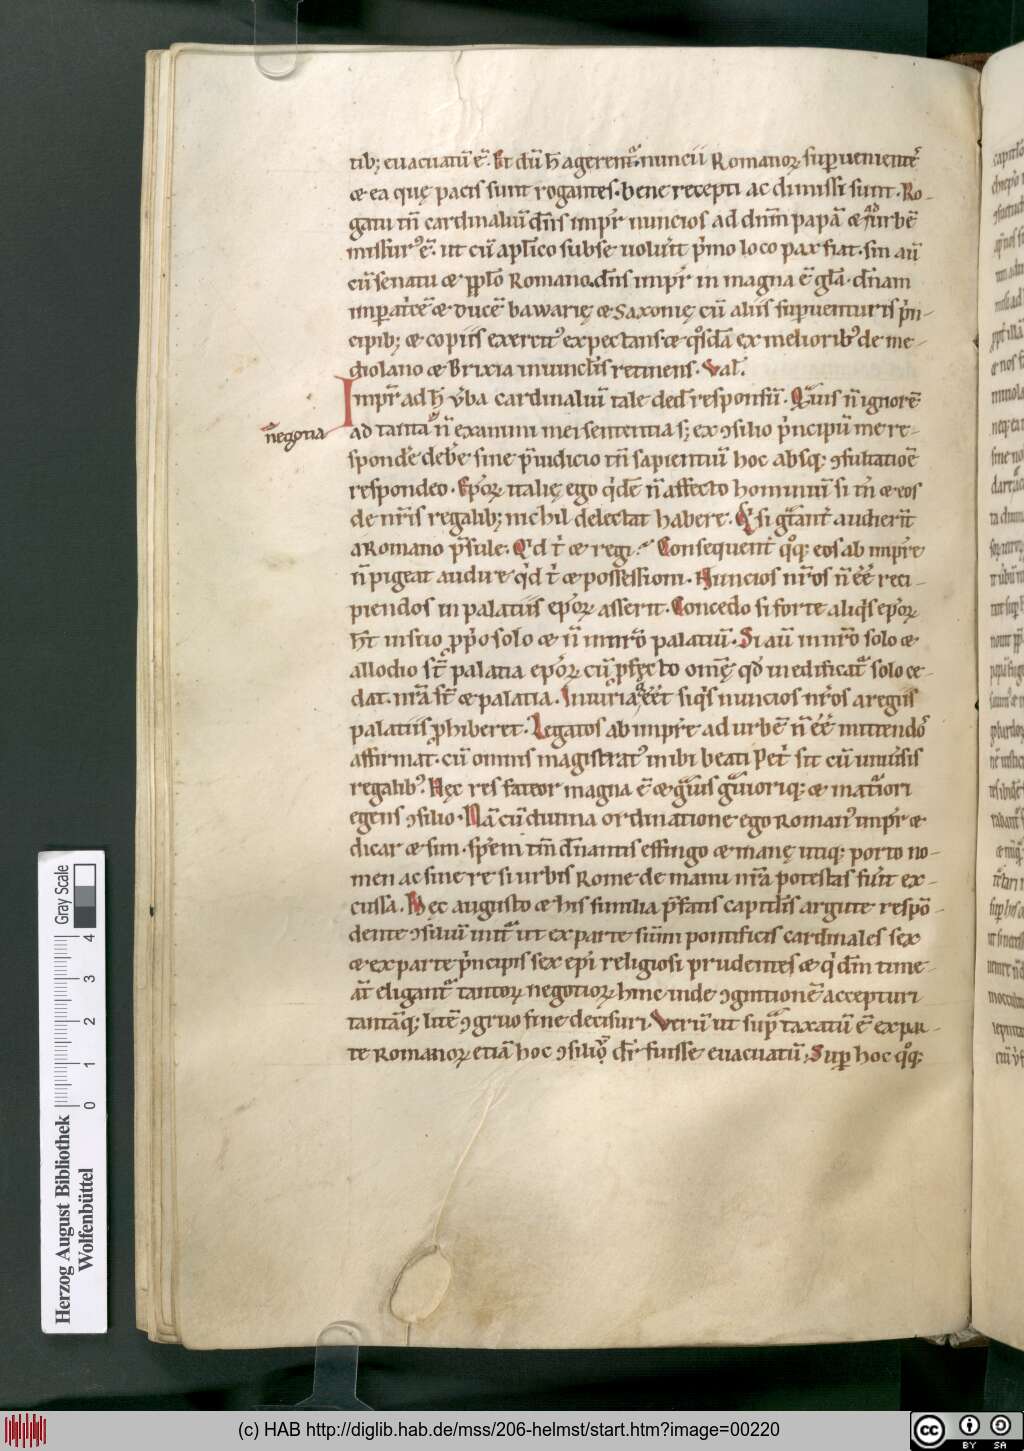 tib; euacuatū ē. Et dū h̄ agerentᷣ. nuncii Romanoꝝ superuenientes
⁊ ea quę pacis sunt rogantes. bene recepti ac dimissi sunt. Ro-
gatu tn̄ cardinaliū dn̄s impr̄ nuncios ad dn̄m papā ⁊ ad urbē
missur᷒ ē. ut cū apl̄ico subse uolūit p̓mo loco pax fiat. sin aū
cū senatu ⁊ pp̄lo Romano. dn̄s impr̄ in magna ē gl̄a. dn̄am
imꝑatͥcē ⁊ ducē bawarię ⁊ Saxonię cū aliis suꝑuenturis p̓n-
cipib; ⁊ copiis exercit᷒ expectans ⁊ qͦsdā ex meliorib᷒ de me-
diolano ⁊ Brixia in uincl̄is retinens. Val̄.
Impr̄ ad h̄ ūba cardinaliū tale ded̄ responsū. Qᷓuis n̄ ignorē
ad tanta n̄ ex animi mei sententia s; ex ꝯsilio p̓ncipū me re-
n̄egotia
spondere debere sine p̄iudicio tn̄ sapientiū hoc absq; ꝯsultatiōe
respondeo. Ep̄oꝝ italię ego qͥdē n̄ affecto hominiū si tn̄ ⁊ eos
de nr̄is regalib; nichil delectat habere. Qͥ si gᷓtant̄ audierīt
a Romano p̄sule. Qͥd t̄ ⁊ regi? Consequent̄ qͦq; eos ab impr̄e
n̄ pigeat audire qͥd t̄ ⁊ possessioni. Nuncios nr̄os n̄ ēē reci-
piendos in palatiis ep̄oꝝ asserit. Concedo si forte aliqͥs ep̄oꝝ
h̄t in suo ꝓp̓o solo ⁊ n̄ in nr̄o palatiū. Si aū in nr̄o solo ⁊
allodio st̄ palatia ep̄oꝝ cū ꝓfęcto om̄ę qd̄ inedificatᷣ solo ce-
dat. nr̄a st̄ ⁊ palatia. Iniuria ḡ ēēt siqͥs nuncios nr̄os a regiis
palatiis ꝓhiberet. Legatos ab impr̄e ad urbē n̄ ēē mittendos
affirmat. cū omnis magistrat᷒ inibi beati Pet̓ sit cū uniuͥsis
regalib᷒. Hęc res fateor magna ē ⁊ gᷓuis gᷓuioriq; ⁊ matᷣiori
egens ꝯsilio. Nā cū diuina ordinatione ego Roman᷒ impr̄ ⁊
dicar ⁊ sim. spēm tm̄ dn̄antis effingo ⁊ manę utiq; porto no-
men ac sine re si urbis Rome de manu nr̄a potestas fūit ex-
cussa. Hęc augusto ⁊ his similia p̄fatis capitl̄is argute respō-
dente ꝯsiliū initᷣ ut ex parte sūm pontificis cardinales sex
⁊ ex parte p̓ncipis sex ep̄i religiosi prudentes ⁊ qͥ dm̄ time-
āt eligant᷑ tantoꝝ negotioꝝ hinc inde ꝯgnitionē accepturi
tantāq; litē ꝯgruo fine decisuri. Verū ut supᷓ taxatū ē ex par-
te Romanoꝝ etiā hoc ꝯsiliū dr̄ fuisse euacuatū; Suꝑ hoc qͦq;
Herzog August Bibliothek
Wolfenbüttel
0 1 2 3 4
Gray Scale
(c) HAB http://diglib.hab.de/mss/206-helmst/start.htm?image=00220
cc BY SA